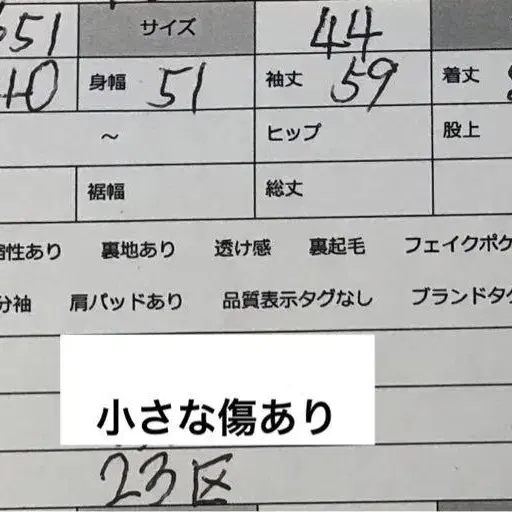 651 サイズ 44
40 身幅 51 袖丈 59 着丈
～ ヒップ 股上
裾幅 総丈
性あり 裏地あり 透け感 裏起毛 フェイクポケ
分袖 肩パッドあり 品質表示タグなし ブランドタグ
小さな傷あり
23区